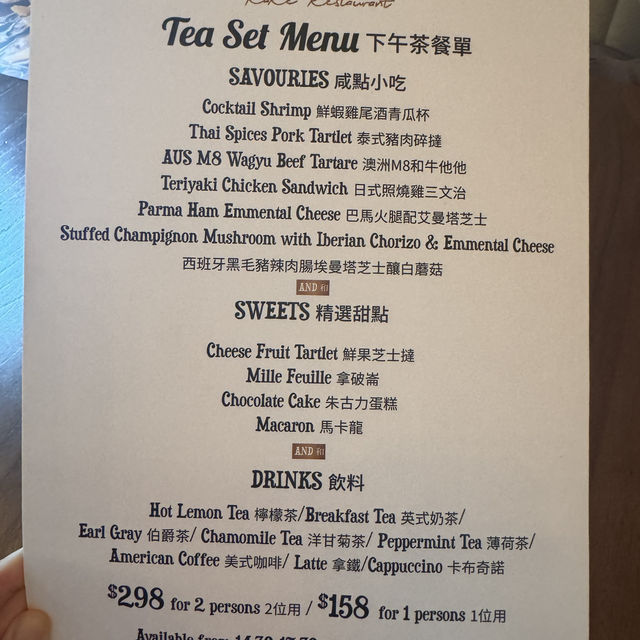 Restaurant
Tea Set Menu 下午茶餐單
SAVOURIES 咸點小吃
Cocktail Shrimp 鮮蝦雞尾酒青瓜杯
Thai Spices Pork Tartlet 泰式豬肉碎撻
AUS M8 Wagyu Beef Tartare 澳洲M8和牛他他
Teriyaki Chicken Sandwich 日式照燒雞三文治
Parma Ham Emmental Cheese 巴馬火腿配艾曼塔芝士
Stuffed Champignon Mushroom with Iberian Chorizo & Emmental Cheese
西班牙黑毛豬辣肉腸埃曼塔芝士釀白蘑菇
AND 和
SWEETS 精選甜點
Cheese Fruit Tartlet 鮮果芝士撻
Mille Feuille 拿破崙
Chocolate Cake 朱古力蛋糕
Macaron 馬卡龍
AND 和
DRINKS 飲料
Hot Lemon Tea 檸檬茶/Breakfast Tea 英式奶茶/
Earl Gray 伯爵茶/ Chamomile Tea 洋甘菊茶/ Peppermint Tea 薄荷茶/
American Coffee 美式咖啡/ Latte 拿鐵/Cappuccino 卡布奇諾
$298 for 2 persons 2位用 / $158 for 1 persons 1位用
Available from